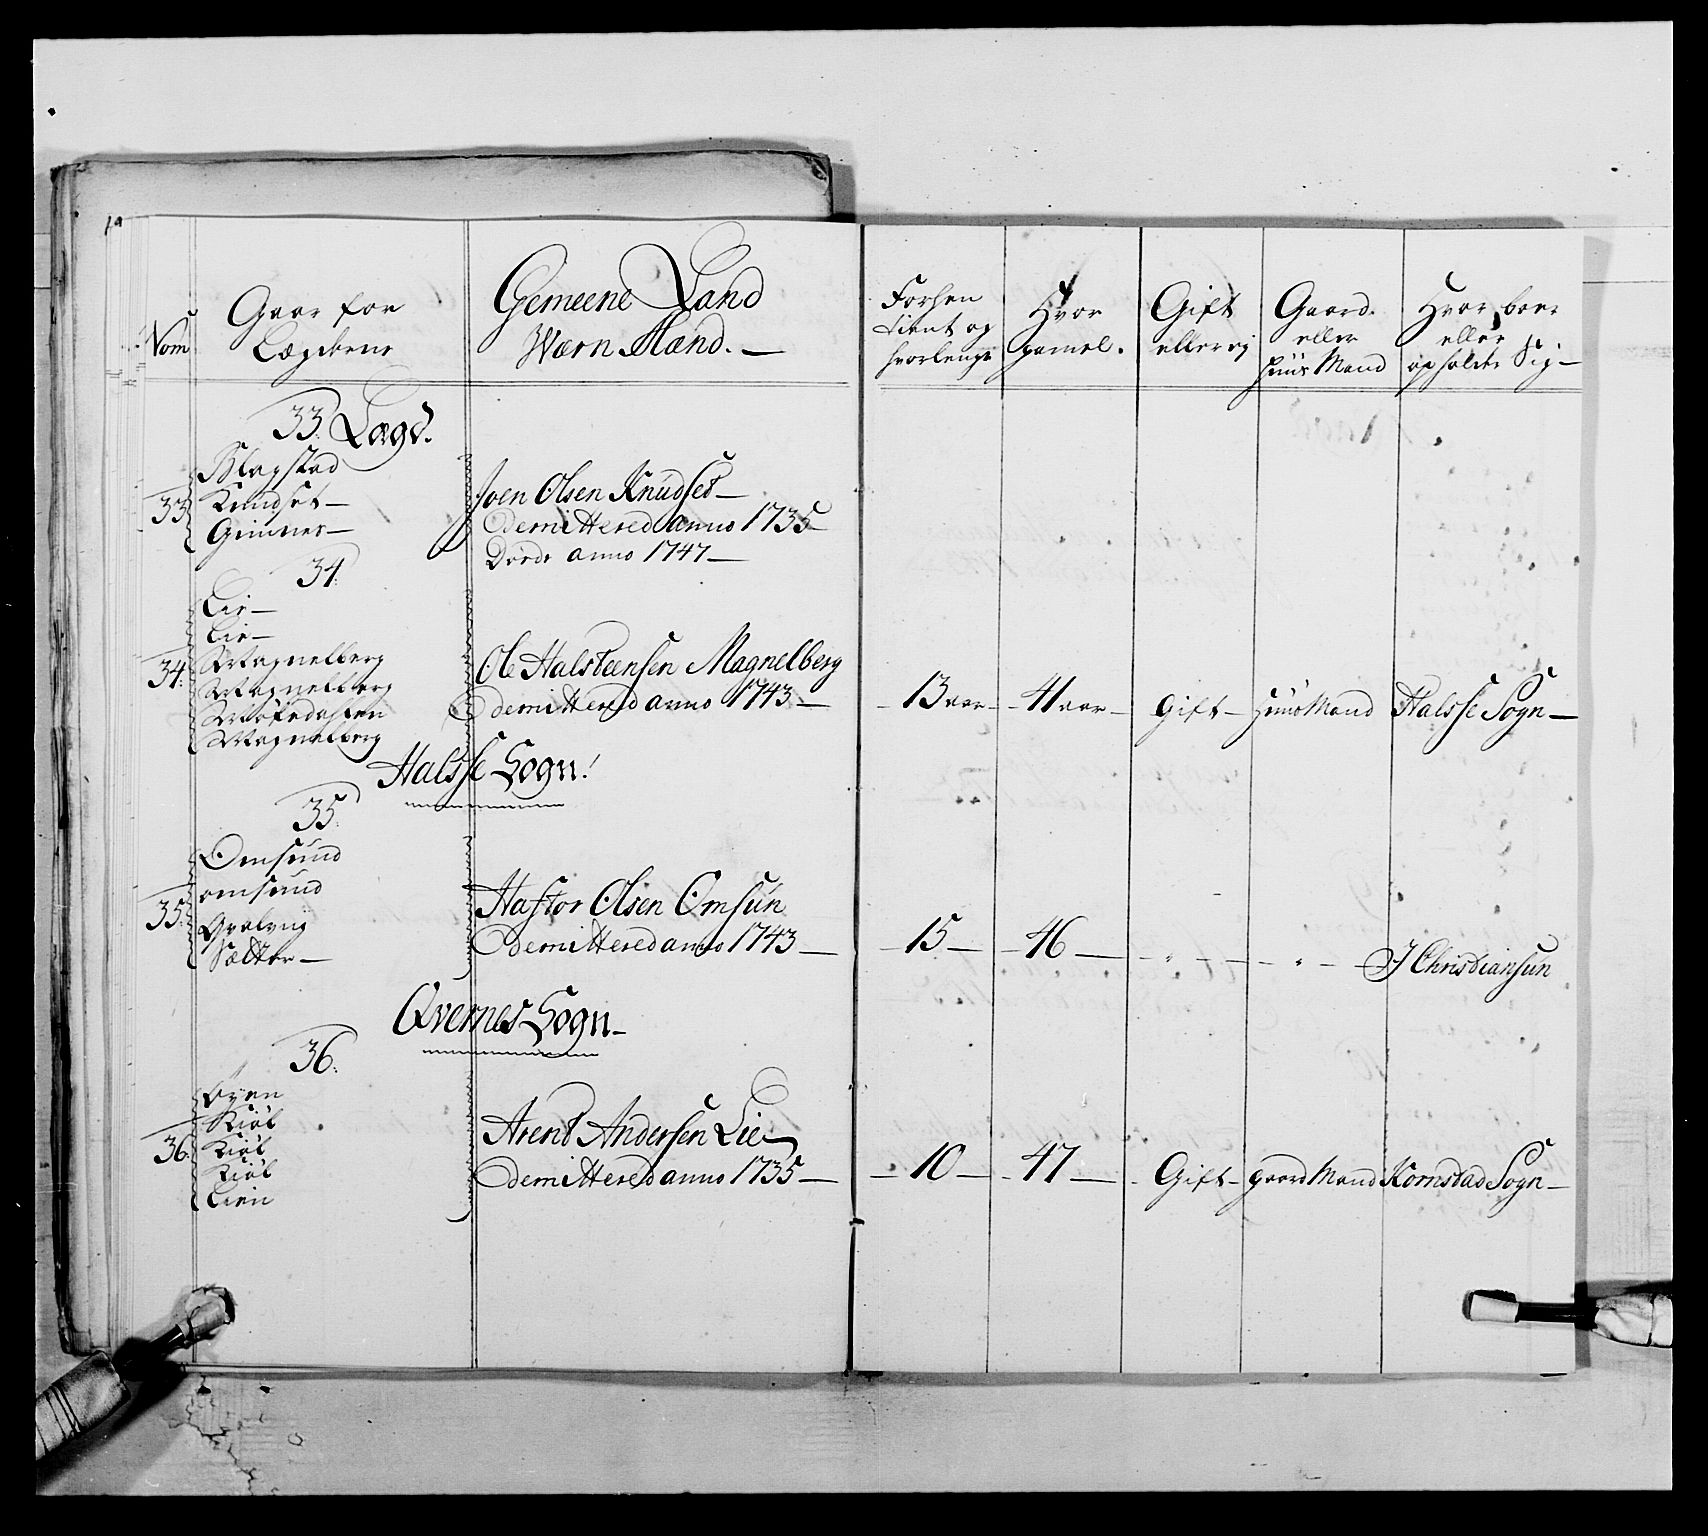 Nom
Gaar for
Lægderne
Gemeene Land
Wærn Mænd. —
Forhen
tient og
hvorlenge
Hvor
gamel.
Gift
eller ej
Gaard.
eller
Huus Mand
Hvor boer
eller
opholder Sig —
33. Lægd.
33
Blagstad
Knudset —
Gimnes —
Joen Olsen Knudsed —
demittered anno 1735
Døede anno 1747 —
34.
34.
Lie —
Lie —
Magnelberg
Magnelberg
Magnelberg
Ole Halsteensen Magnelberg
demittered anno 1743 —
— 13 aar —
— 41 aar —
Gift —
Huus Mand
Halsse Sogn —
Halsse Sogn!
35.
35.
Omsund
omsund
Sætter —
Hastor Olsen Omsún
demittered anno 1743 —
— 15 —
— 46 —
— " —
— " —
I Christiansún
Qvernes Sogn —
36.
36.
Øyen
Kiøl
Kiøl
Kiøl
Lien
Arent Andersen Lie —
demittered anno 1735 —
— 10 —
— 47 —
Gift —
gaard Mand
Kornstad Sogn —